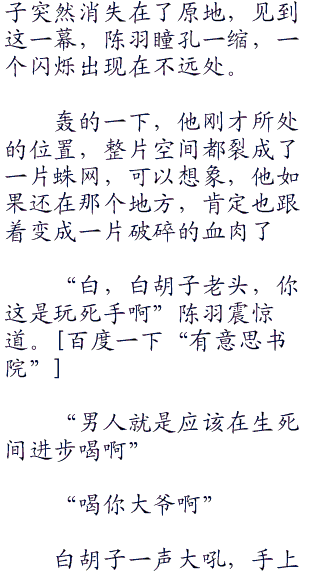 子突然消失在了原地，见到
这一幕，陈羽瞳孔一缩，一
个闪烁出现在不远处。
轰的一下，他刚才所处
的位置，整片空间都裂成了
一片蛛网，可以想象，他如
果还在那个地方，肯定也跟
着变成一片破碎的血肉了
“白，白胡子老头，你
这是玩死手啊”陈羽震惊
道。[百度一下“有意思书
院”]
“男人就是应该在生死
间进步喝啊”
“喝你大爷啊”
白胡子一声大吼，手上